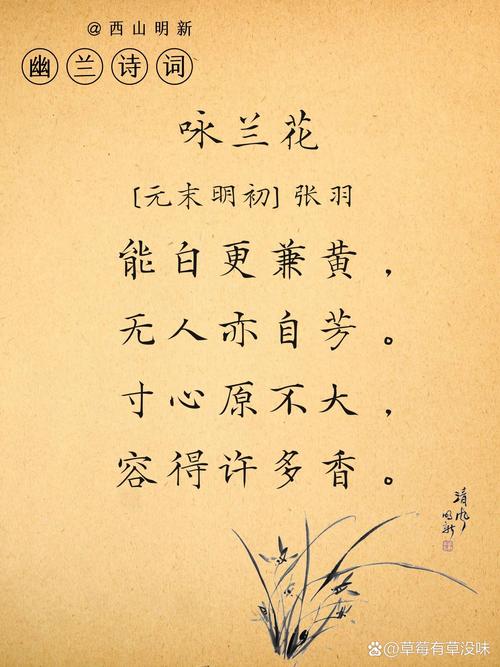 @西山明新
幽兰诗词
咏兰花
[元末明初]张羽
能白更兼黄，
无人亦自芳。
寸心原不大，
容得许多香。
清风
明新
@草莓有草没味